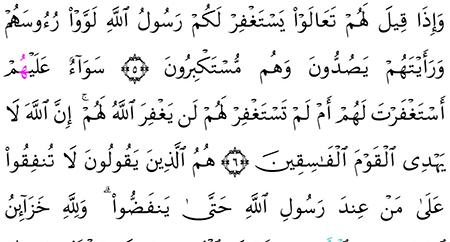 وَإِذَا قِيلَ لَهُمْ تَعَالَوْاْ يَسْتَغْفِرْ لَكُمْ رَسُولُ اللَّهِ لَوَّوْاْ رُءُوسَهُمْ
وَرَأَيْتَهُمْ يَصُدُّونَ وَهُم مُّسْتَكْبِرُونَ ۝٥ سَوَآءٌ عَلَيْهُمْ
أَسْتَغْفَرْتَ لَهُمْ أَمْ لَمْ تَسْتَغْفِرْ لَهُمْ لَن يَغْفِرَ اللَّهُ لَهُمْ ۚ إِنَّ اللَّهَ لَا
يَهْدِى الْقَوْمَ الْفَٰسِقِينَ ۝٦ هُمُ الَّذِينَ يَقُولُونَ لَا تُنفِقُواْ
عَلَىٰ مَنْ عِندَ رَسُولِ اللَّهِ حَتَّىٰ يَنفَضُّواْ ۗ وَلِلَّهِ خَزَآئِنُ